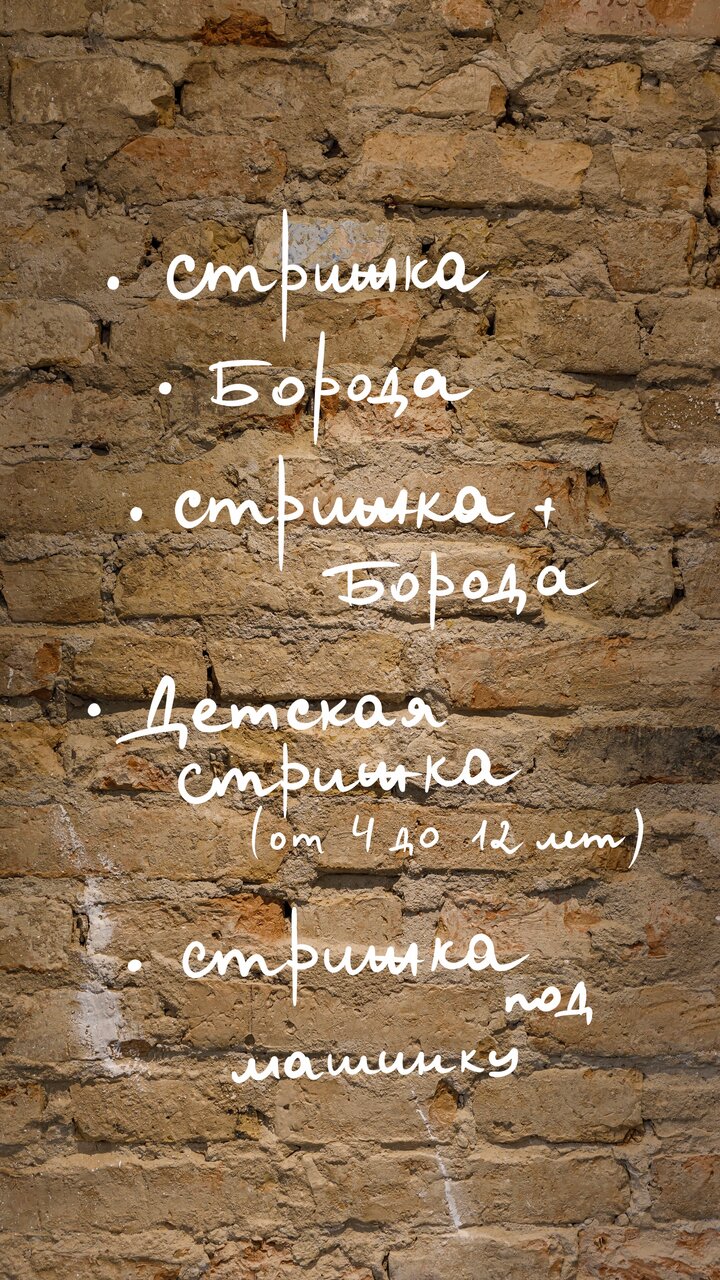 • стрижка
• Борода
• стрижка +
Борода
• Детская
стрижка
(от 4 до 12 лет)
• стрижка
под
машинку